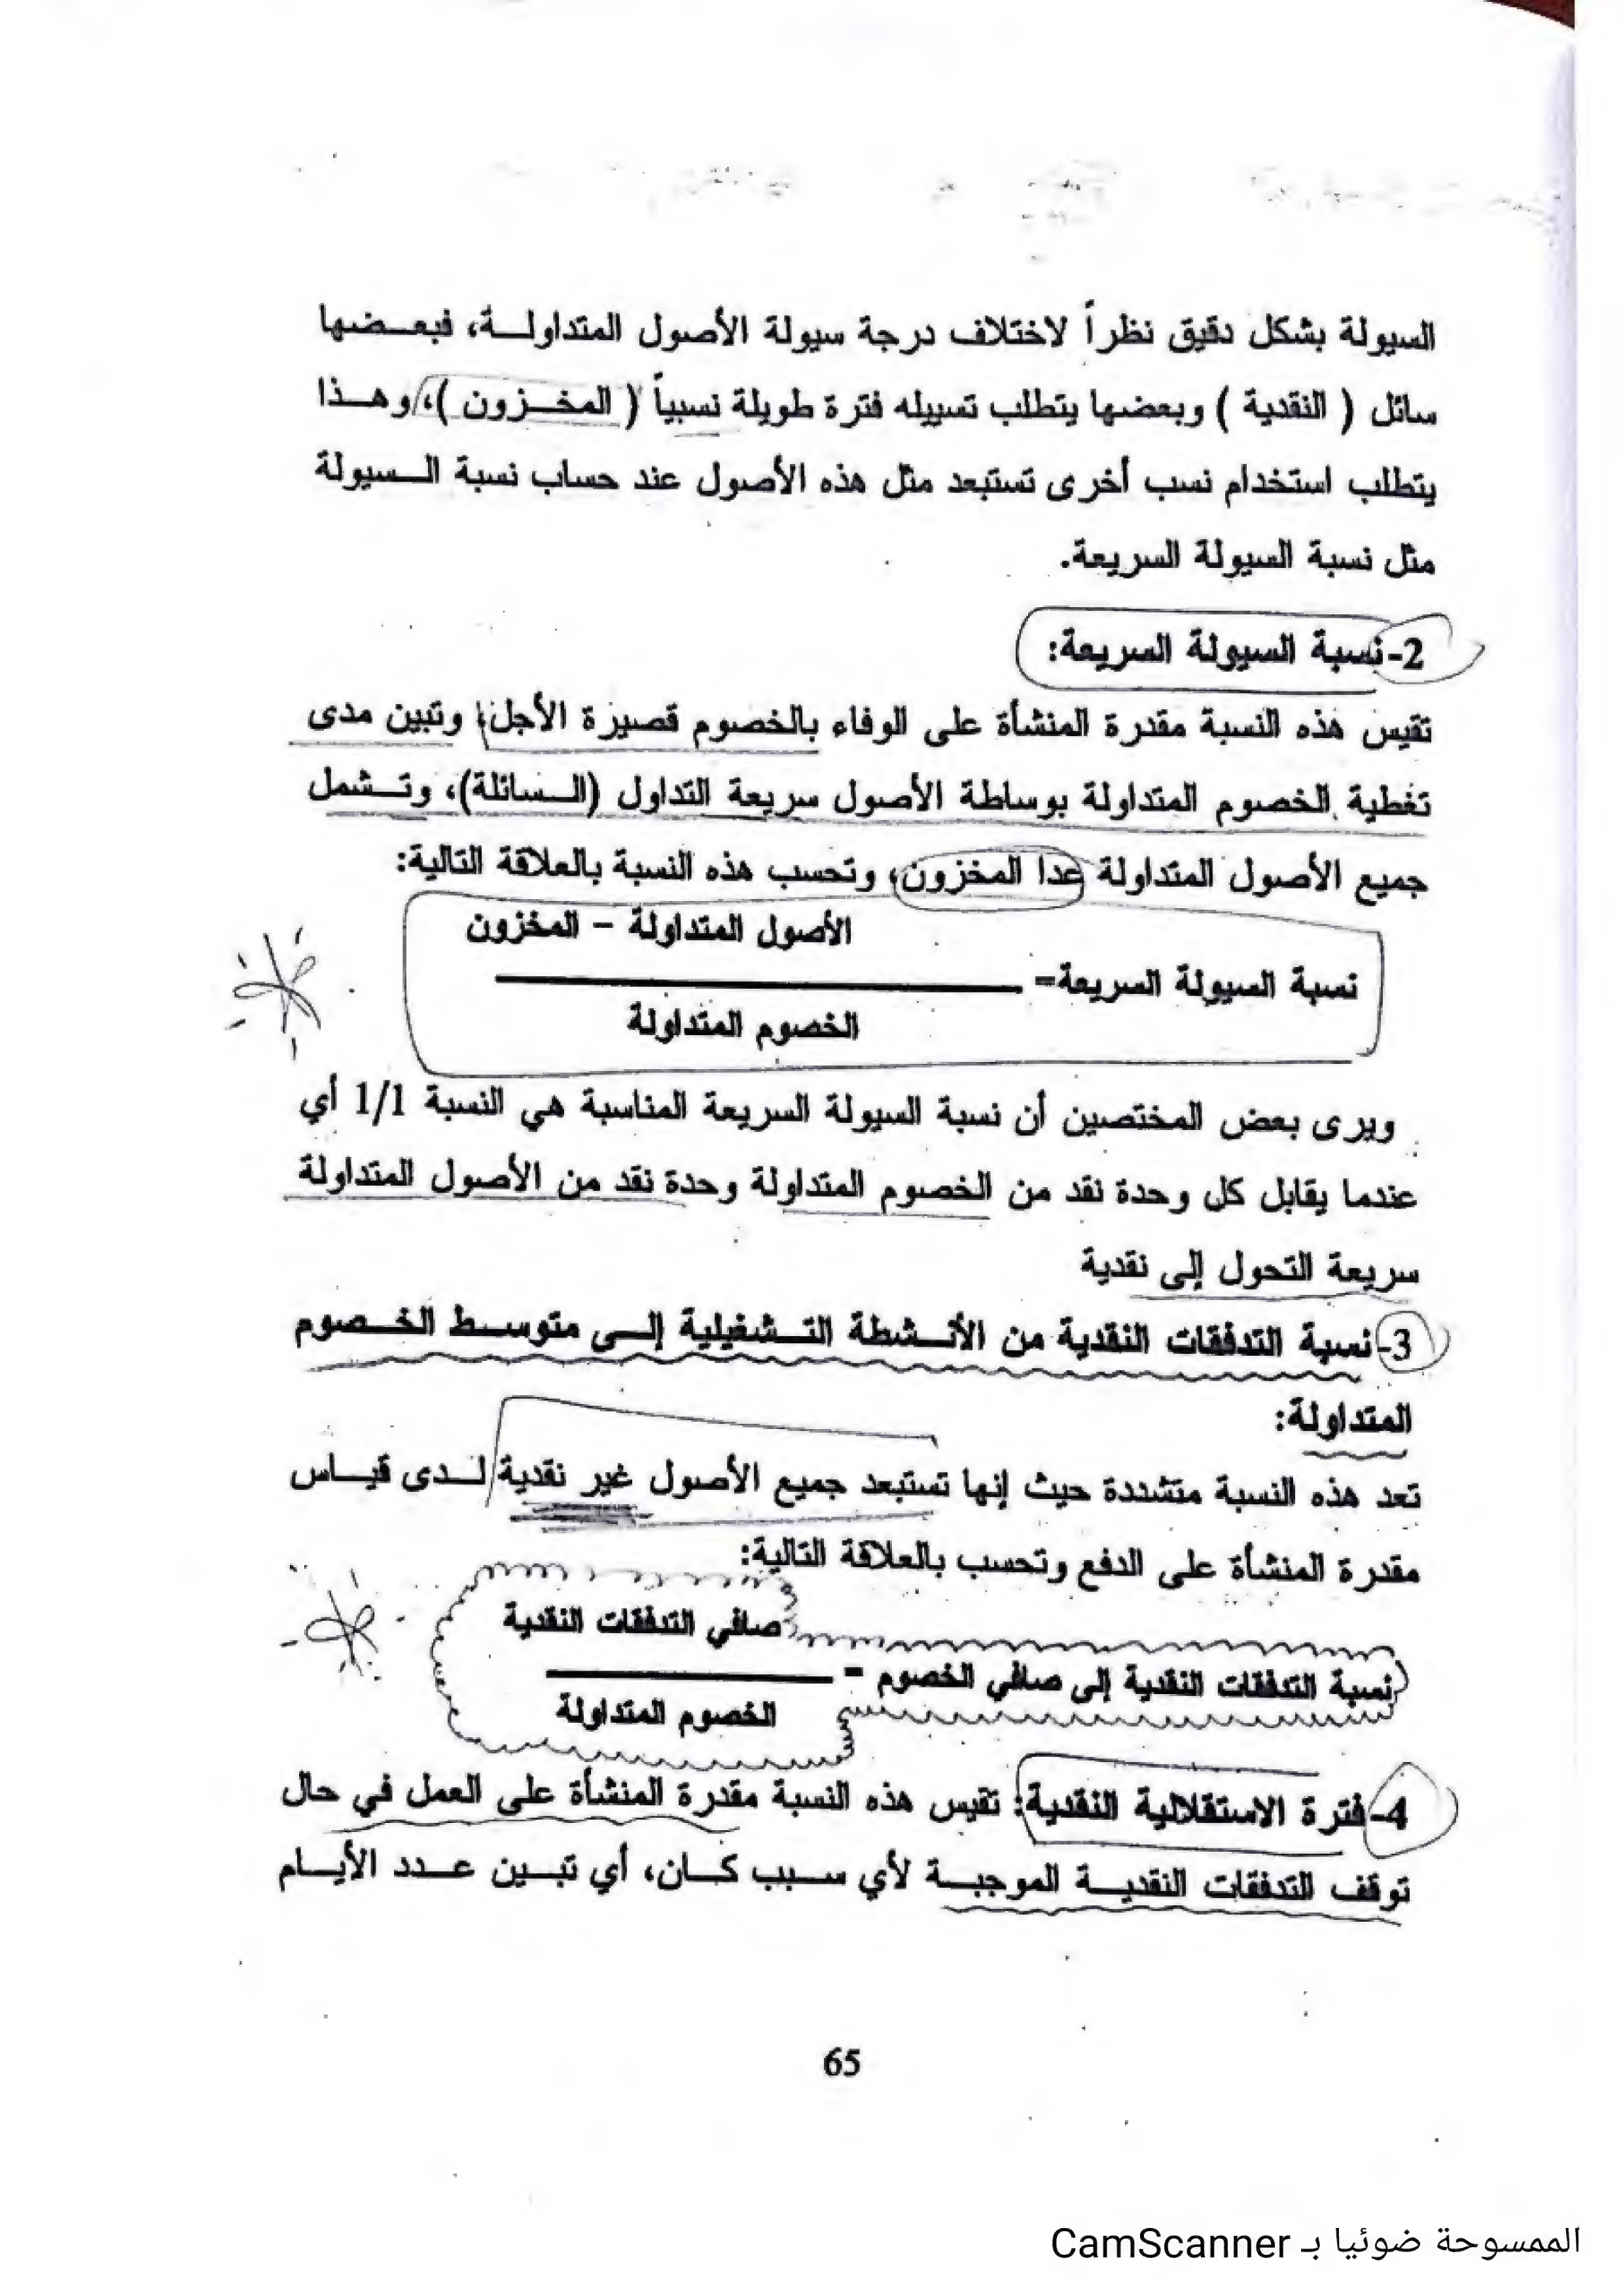 السيولة بشكل دقيق نظراً لاختلاف درجة سيولة الأصول المتداولة، فبعضها
سائل ( النقدية ) وبعضها يتطلب تسييله فترة طويلة نسبياً ( المخزون )، وهذا
يتطلب استخدام نسب أخرى تستبعد مثل هذه الأصول عند حساب نسبة السيولة
مثل نسبة السيولة السريعة.
2-نسبة السيولة السريعة:
تقيس هذه النسبة مقدرة المنشأة على الوفاء بالخصوم قصيرة الأجل، وتبين مدى
تغطية الخصوم المتداولة بوساطة الأصول سريعة التداول (السائلة)، وتشمل
جميع الأصول المتداولة عدا المخزون، وتحسب هذه النسبة بالعلاقة التالية:
الأصول المتداولة – المخزون
نسبة السيولة السريعة=
الخصوم المتداولة
ويرى بعض المختصين أن نسبة السيولة السريعة المناسبة هي النسبة 1/1 أي
عندما يقابل كل وحدة نقد من الخصوم المتداولة وحدة نقد من الأصول المتداولة
سريعة التحول إلى نقدية
3-نسبة التدفقات النقدية من الأنشطة التشغيلية إلى متوسط الخصوم
المتداولة:
تعد هذه النسبة متشددة حيث إنها تستبعد جميع الأصول غير نقدية لدى قياس
مقدرة المنشأة على الدفع وتحسب بالعلاقة التالية:
صافي التدفقات النقدية
نسبة التدفقات النقدية إلى صافي الخصوم =
الخصوم المتداولة
4-فترة الاستقلالية النقدية: تقيس هذه النسبة مقدرة المنشأة على العمل في حال
توقف التدفقات النقدية الموجبة لأي سبب كان، أي تبين عدد الأيام
65
الممسوحة ضوئيا بـ CamScanner